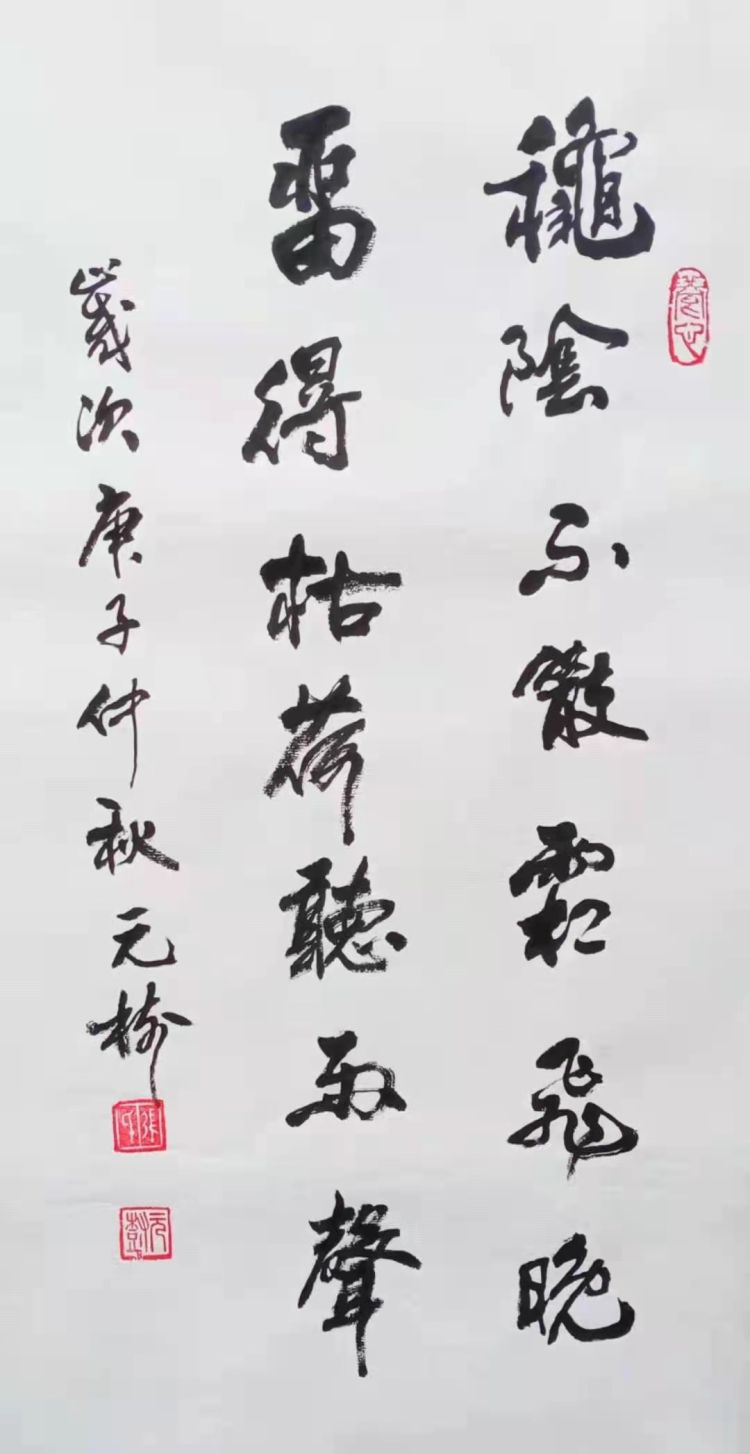 龝陰不散霜飛晚
畱得枯荷聽雨聲
歲次庚子仲秋元